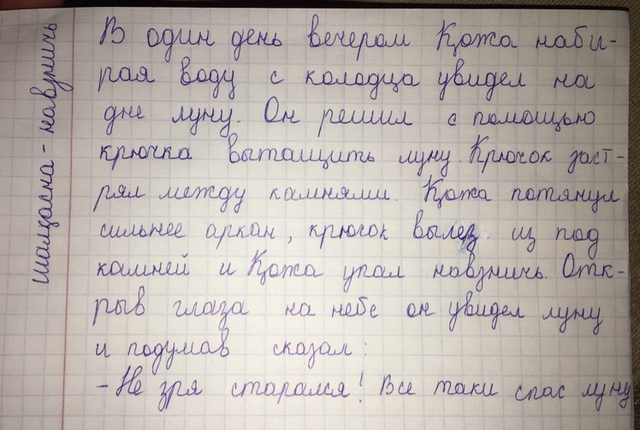 шалқасна - навзничь
В один день вечером Қожа наби-
рая воду с колодца увидел на
дне луну. Он решил с помощью
крючка вытащить луну. Крючок заст-
рял между камнями. Қожа потянул
сильнее аркан, крючок вылез из под
камней и Қожа упал навзничь. Отк-
рыв глаза на небе он увидел луну
и подумав сказал:
- Не зря старался! Все таки спас луну